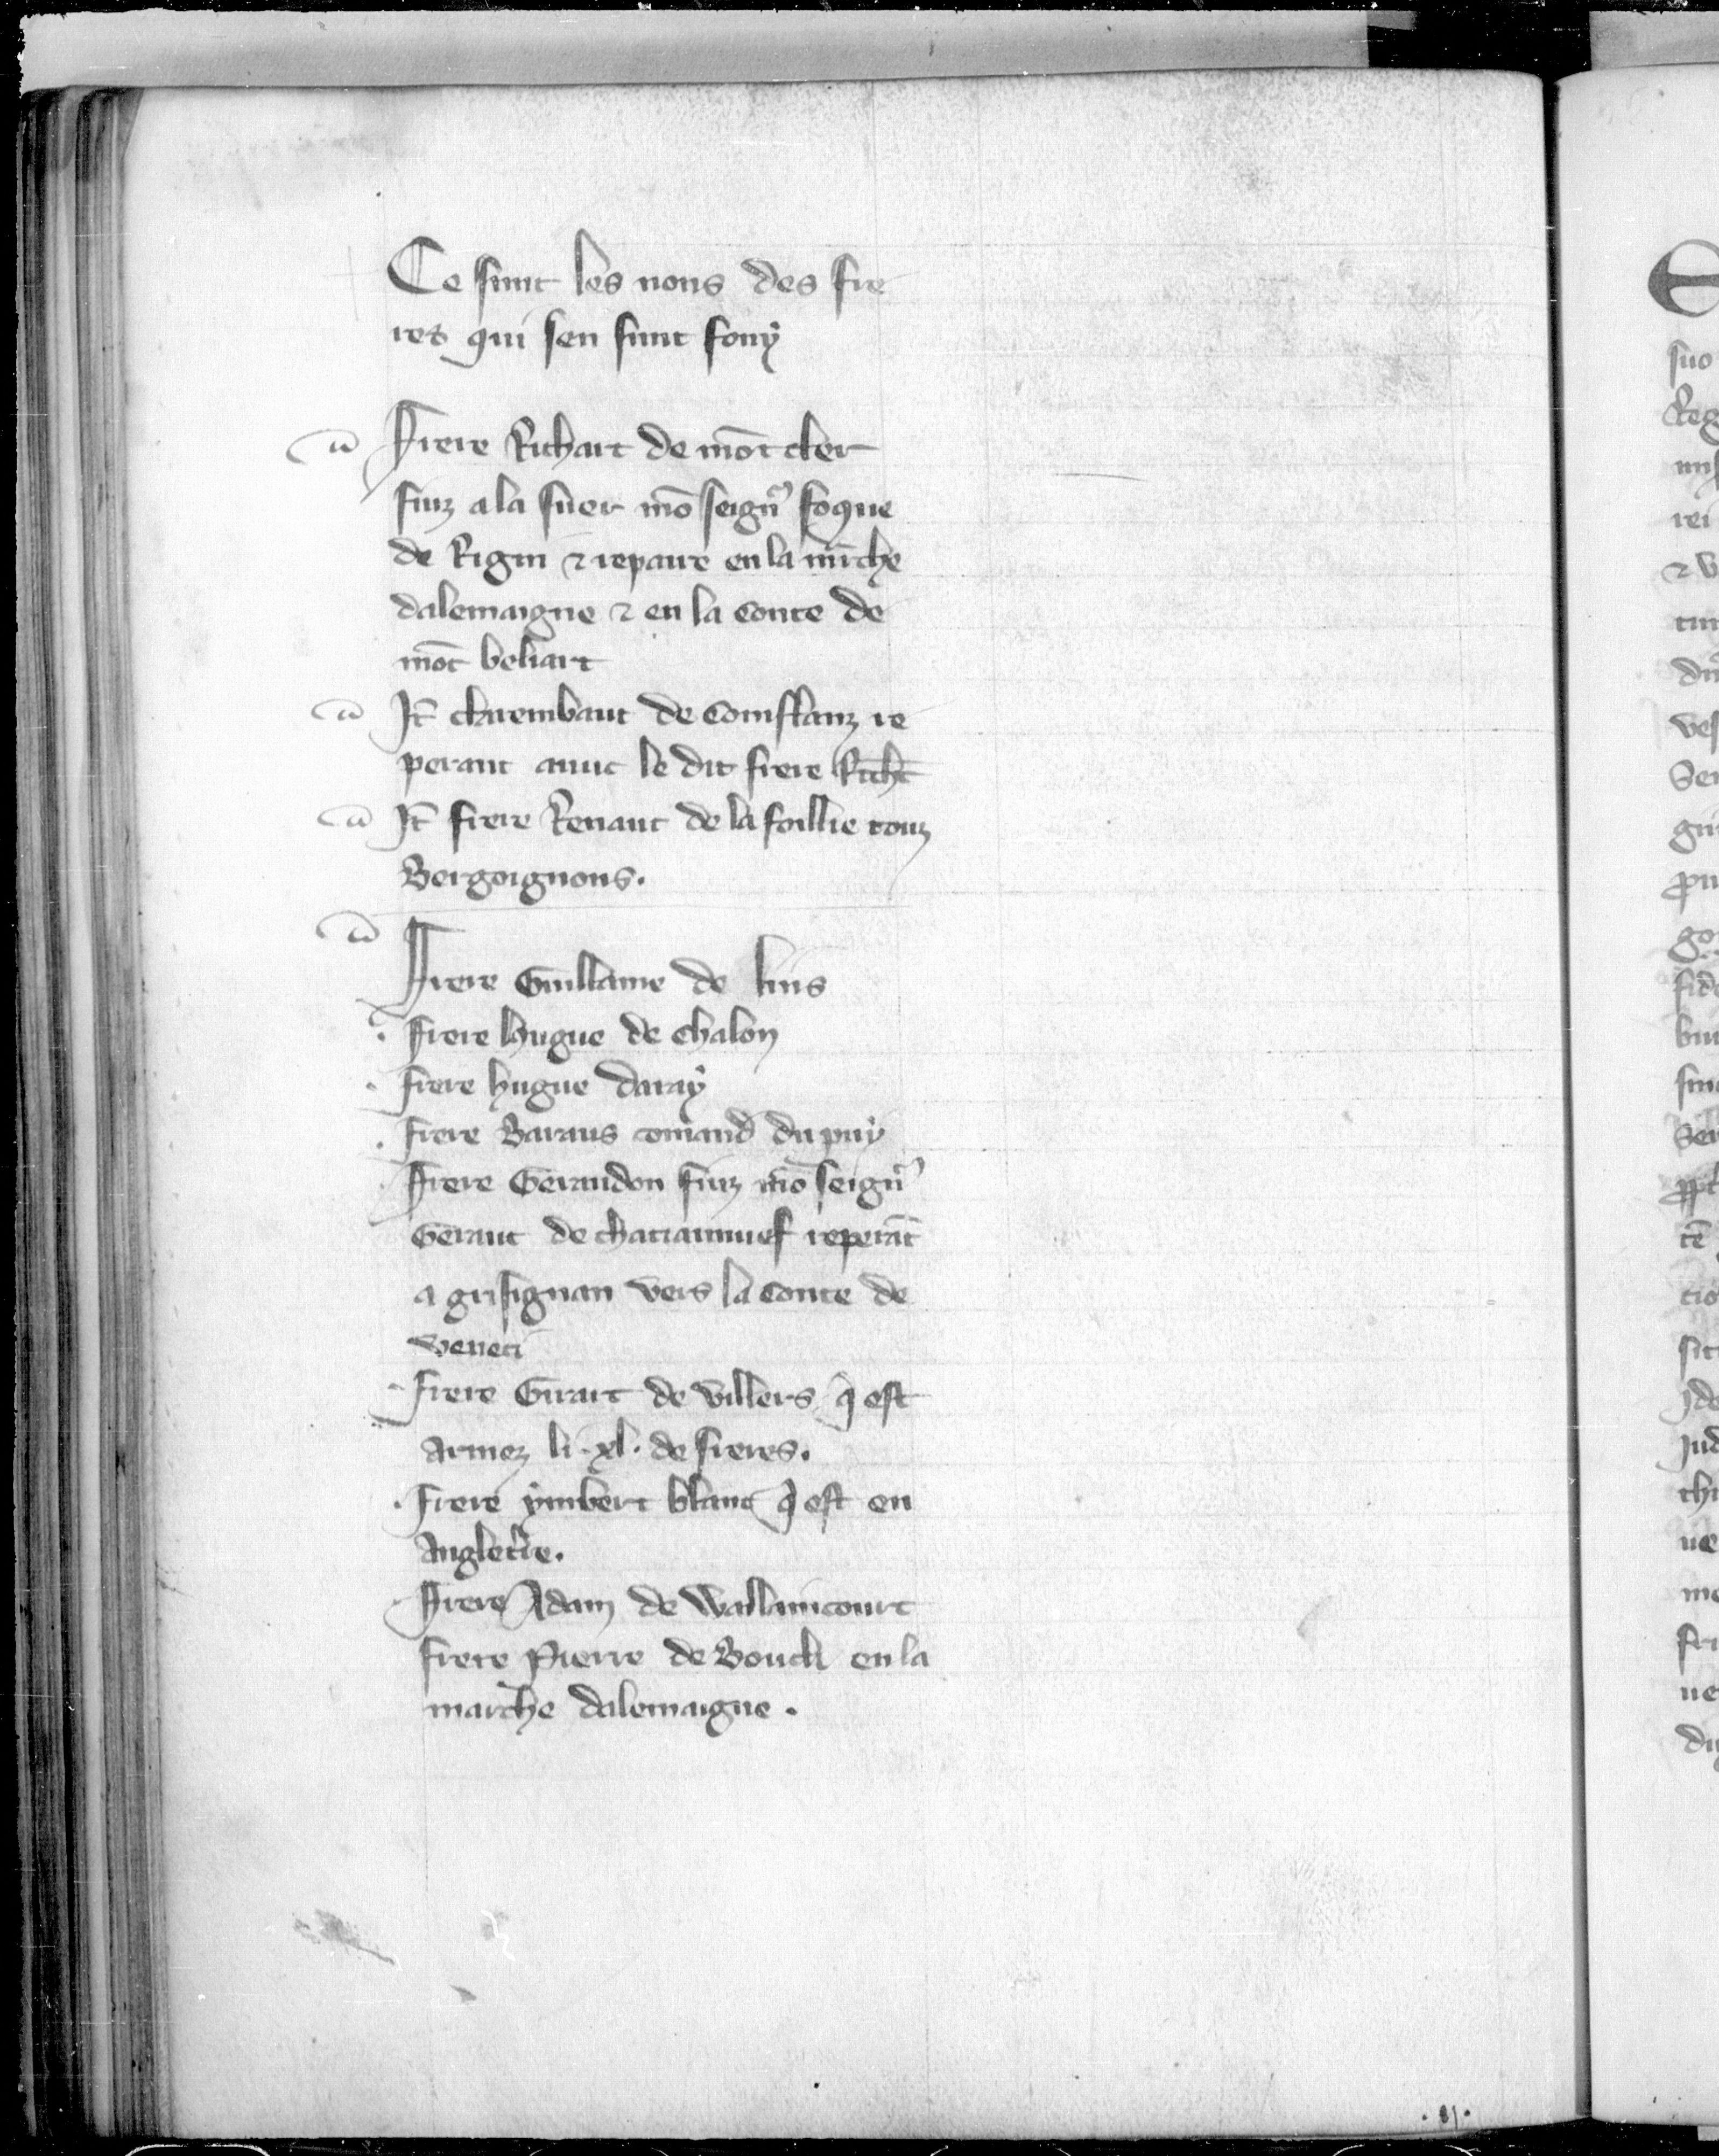 Ce sunt les nons des fre
res qui sen sunt fouÿ
Frere Richart de mōt cler
fiuz a la suer mō seignr̄ foque
de Rigni ⁊ repaire en la m̄rche
dalemaigne ⁊ en la conte de
mōt beliart
It̄ clarembaut de Conistanz re
perant avuc le dit frere Rich̄t
It̄ frere Renaut de la foillie touz
Bergoignons.
Frere Guillame de lins
frere hugue de Chalon
frere hugue daray
frere Baraus comand̄ du puÿ
Frere Geraudon fiuz mō seignr̄
Geraut de chatiaunuef reperāt
a grisignan vers la conte de
veneci
frere Girart de villers q̄ est
armez li .xl. de freres.
Frere ÿmbert blanc q̄ est en
Anglet̄re.
Frere Adam de Wallaincourt
frere Pierre de Boucli en la
marche dalemaigne.
suo
Reg
rei
⁊ v
tim
ves
Sen
go
fide
sit
Jde
Jud
ue
me
fri
ue